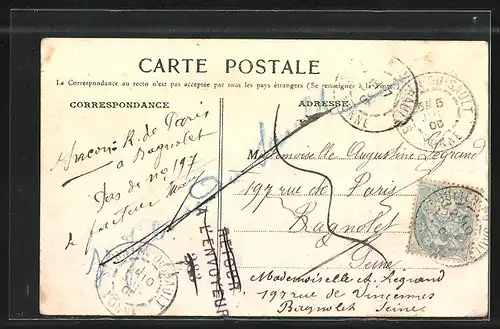 CARTE POSTALE
La Correspondance au recto n'est pas acceptée par tous les pays étrangers (Se renseigner à la Poste)
CORRESPONDANCE
ADRESSE
Inconnu R. de Paris
à Bagnolet
Pas de No 197
Le facteur
Mademoiselle Augustine Legrand
197 rue de Paris
Bagnolet
Seine
RETOUR
A L'ENVOYEUR
Mademoiselle et Legrand
197 rue de Vincennes
Bagnolet Seine